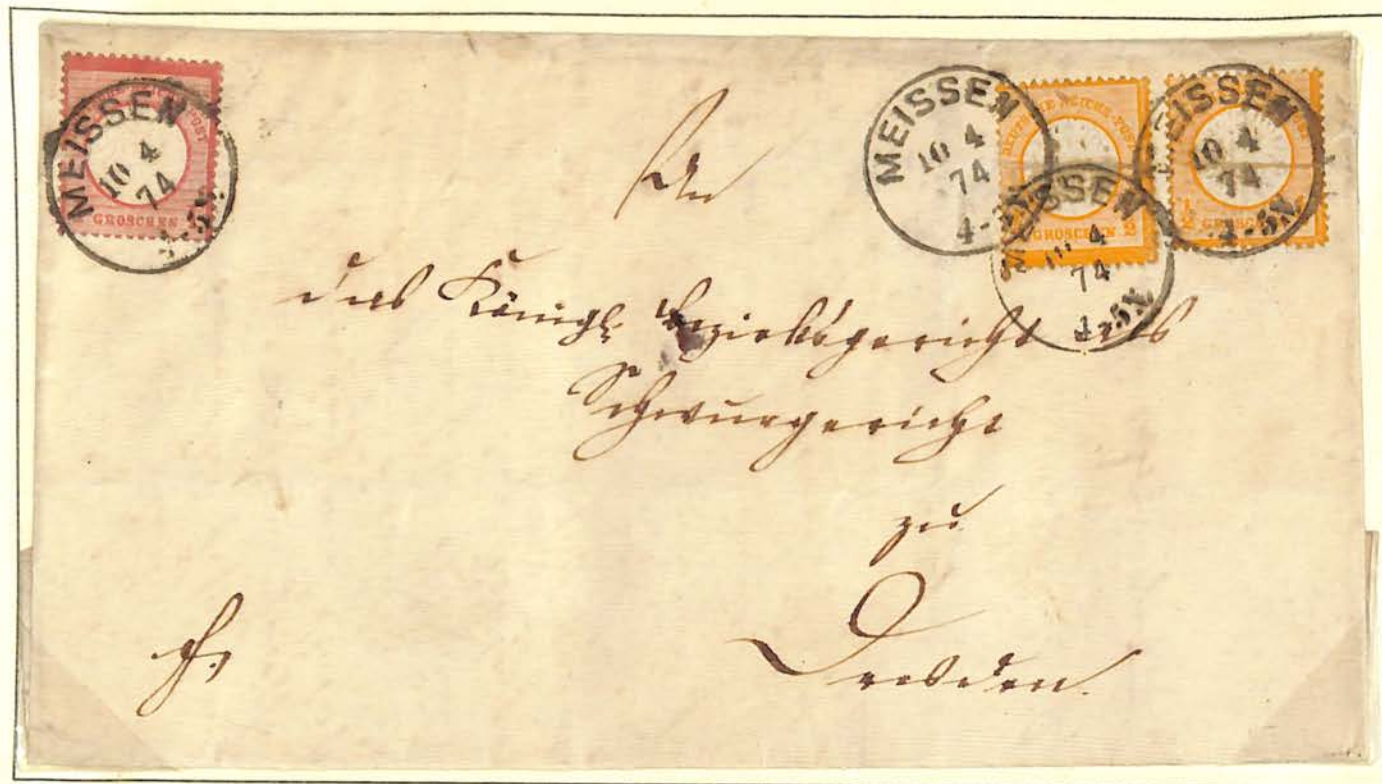 MEISSEN
10 4
74
4-5N.
GROSCHEN
MEISSEN
10 4
74
4-5N.
DEUTSCHE REICHS-POST
GROSCHEN
MEISSEN
10 4
74
4-5N.
MEISSEN
10 4
74
4-5N.
½ GROSCHEN
An
das Königl. Bezirksgericht als
Schwurgericht
zu
Dresden.